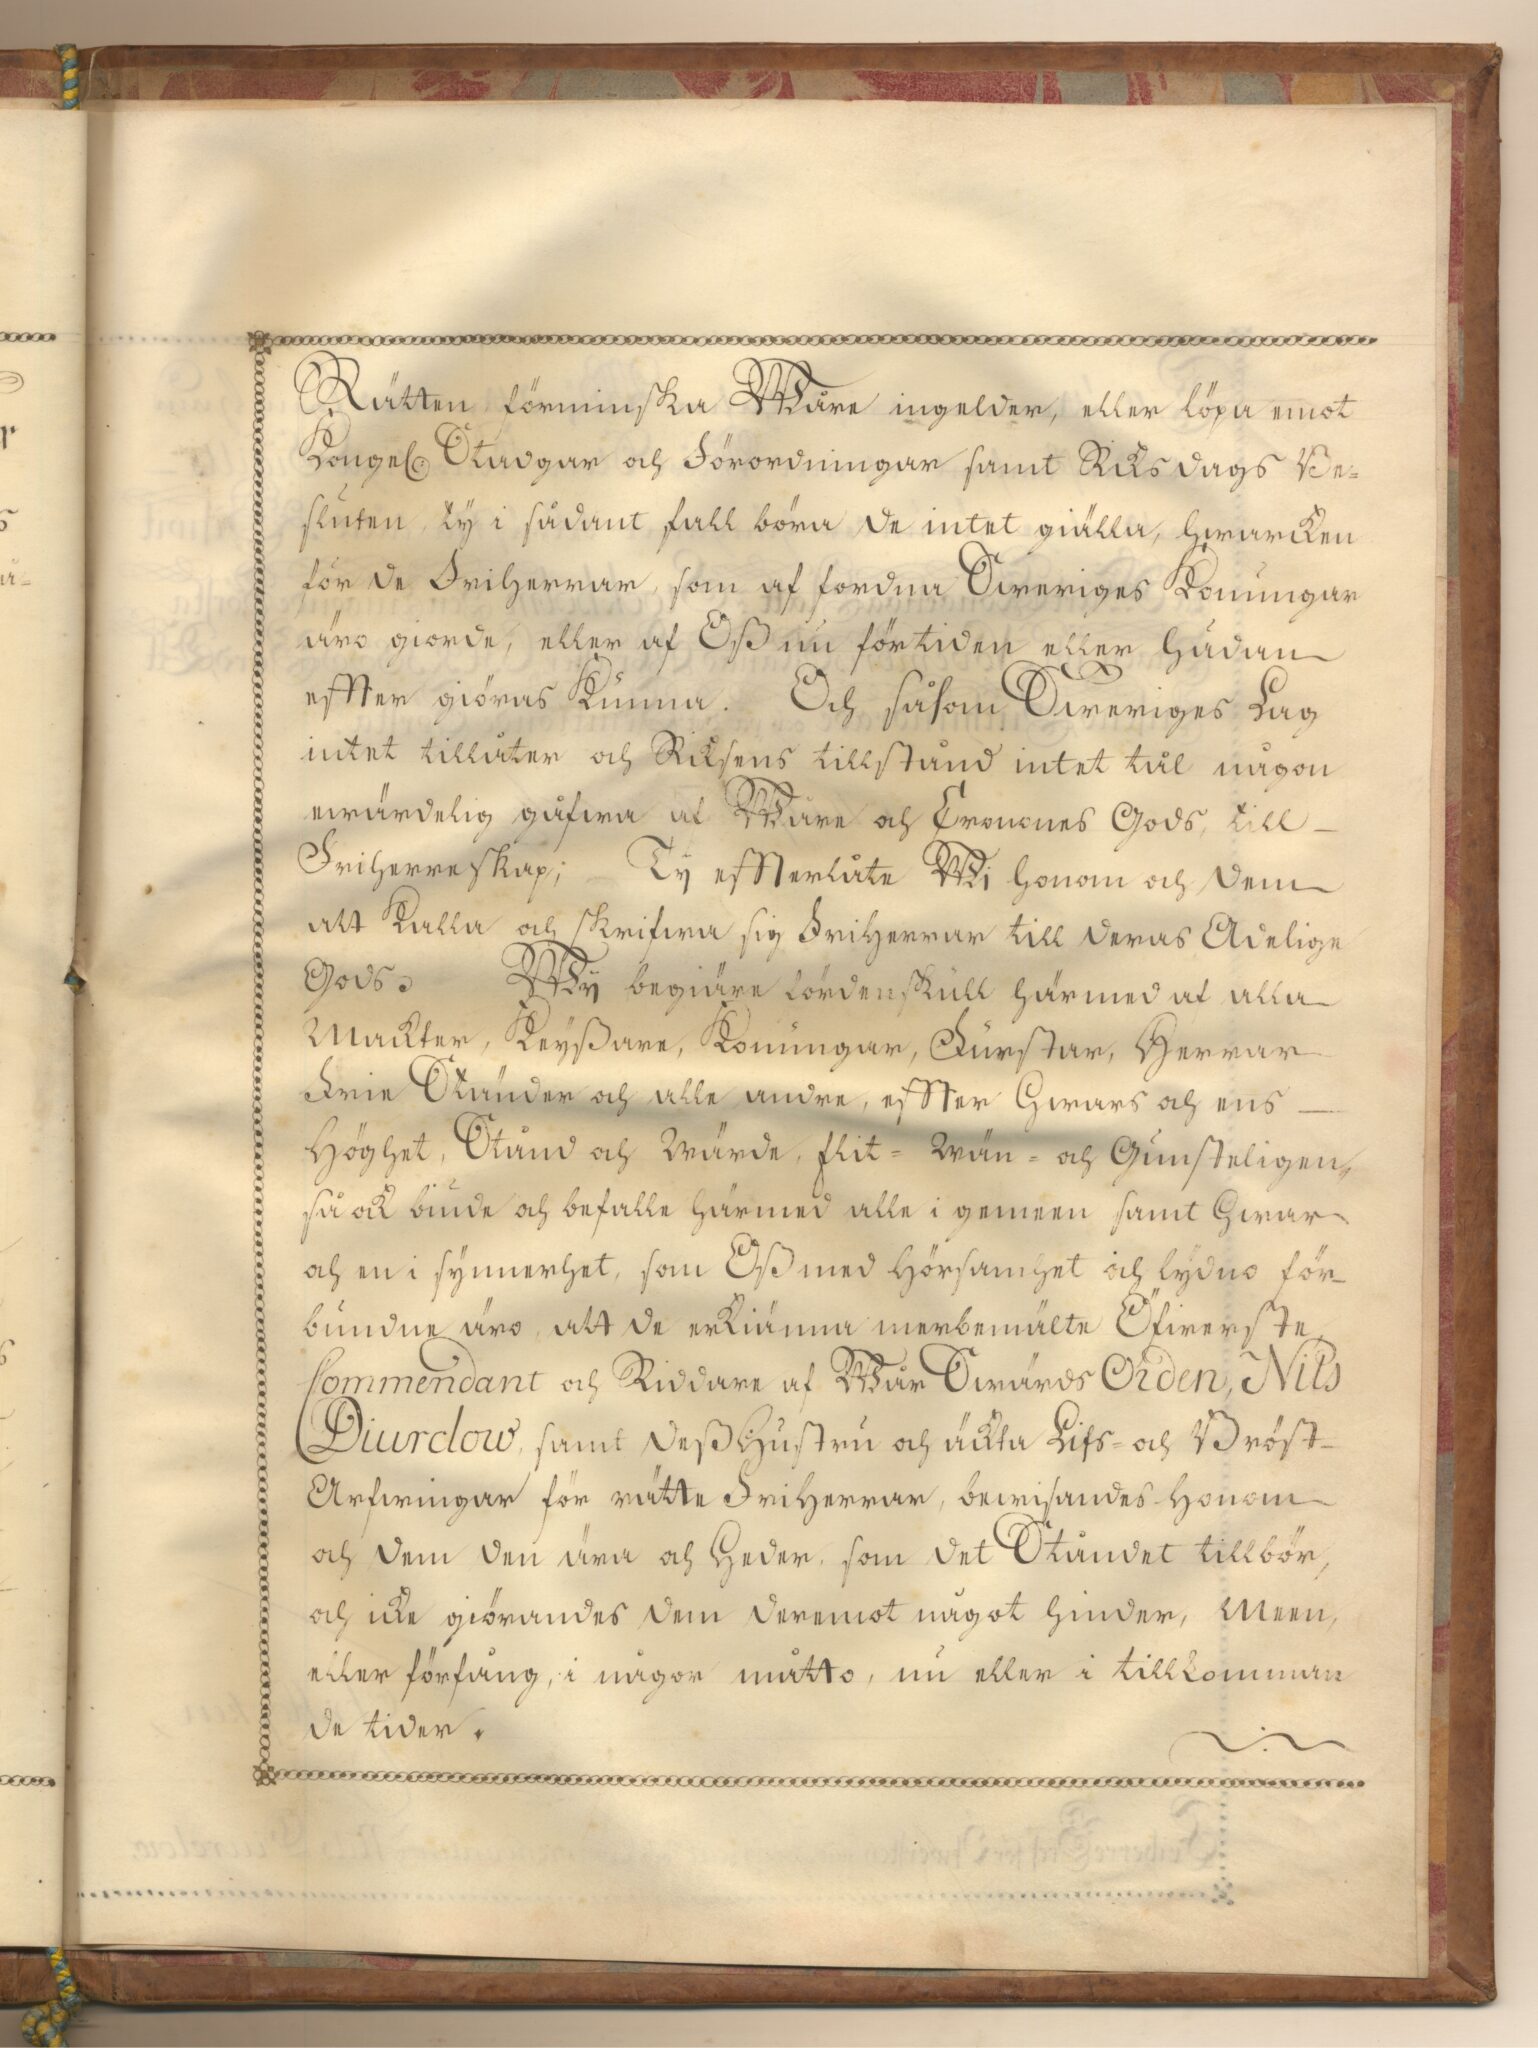 Rätten förminska Wåre ingelder, eller löpa emot
Kongel. Stadgar och Förordningar samt Riksdags Be=
sluten, ty i sådant fall böra de intet giälla, hwarcken
för de Friherrar, som af fordna Sweriges Konungar
äro giorde, eller af Oß nu förtiden eller hädan
effter giöras kunna. Och såsom Sweriges Lag
intet tillåter och Riksens tillstånd intet tål någon
ewärdelig gåfwa af Wåre och Cronones Gods, till
Friherreskap; Ty effterlåte Wi honom och dem
att kalla och skrifwa sig Friherrar till deras Adelige
Gods. Wij begiäre fördenskull härmed af alla
Mackter, Keyßare, Konungar, Furstar, Herrar
Frie Ständer och alle andre, effter Hwars och ens
Höghet, Stånd och wärde, flit= wän= och Gunsteligen,
så ock biude och befalle härmed alle i gemeen samt Hwar
och en i synnerhet, som Oß med Hörsamhet och lydno för
bundne äro, att de erkiänna merbemälte Öfwerste,
Commendant och Riddare af Wår Swärds Orden, Nils
Diurclow, samt deß Hustru och äckta Lifs= och Bröst
Arfwingar för rätte Friherrar, bewisandes honom
och dem den ära och heder, som det Ståndet tillbör,
och icke giörandes dem deremot något hinder, Meen,
eller förfång, i någor måtto, nu eller i tillkomman
de tider.